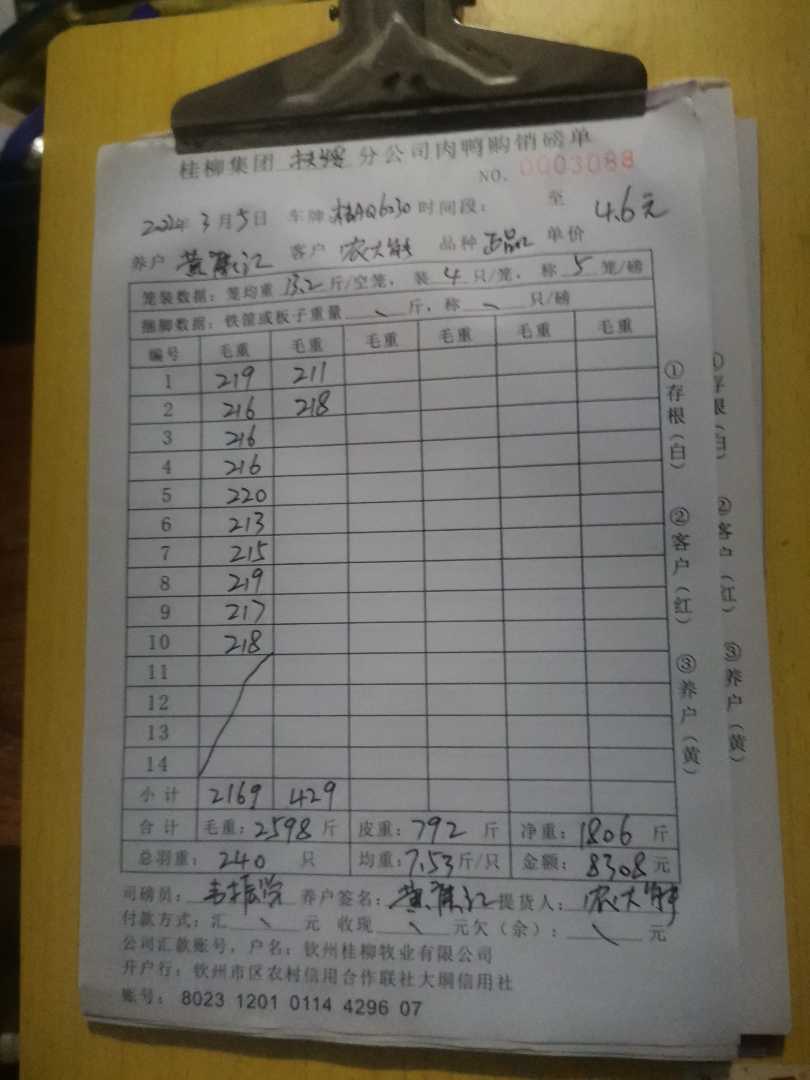 桂柳集团 扶绥 分公司肉鸭购销磅单
NO. 0003088
2022年3月5日 车牌 桂AQ6030 时间段: 至
养户 黄 江 客户 农大 品种 正品 单价 4.6元
笼装数据: 笼均重 13.2 斤/空笼, 装 4 只/笼, 称 5 笼/磅
捆脚数据: 铁筐或板子重量 斤, 称 只/磅
编号 毛重 毛重 毛重 毛重 毛重 毛重
1 219 211
2 216 218
3 216
4 216
5 220
6 213
7 215
8 219
9 217
10 218
11
12
13
14
小计 2169 429
合计 毛重: 2598 斤 皮重: 792 斤 净重: 1806 斤
总羽重: 240 只 均重: 7.53 斤/只 金额: 8308 元
司磅员: 韦振 养户签名: 黄 江 提货人: 农大
付款方式: 汇 元 收现 元欠(余): 元
公司汇款账号, 户名: 钦州桂柳牧业有限公司
开户行: 钦州市区农村信用合作联社大垌信用社
账号: 8023 1201 0114 4296 07
①存根(白)
②客户(红)
③养户(黄)
①存根(白)
②客户(红)
③养户(黄)